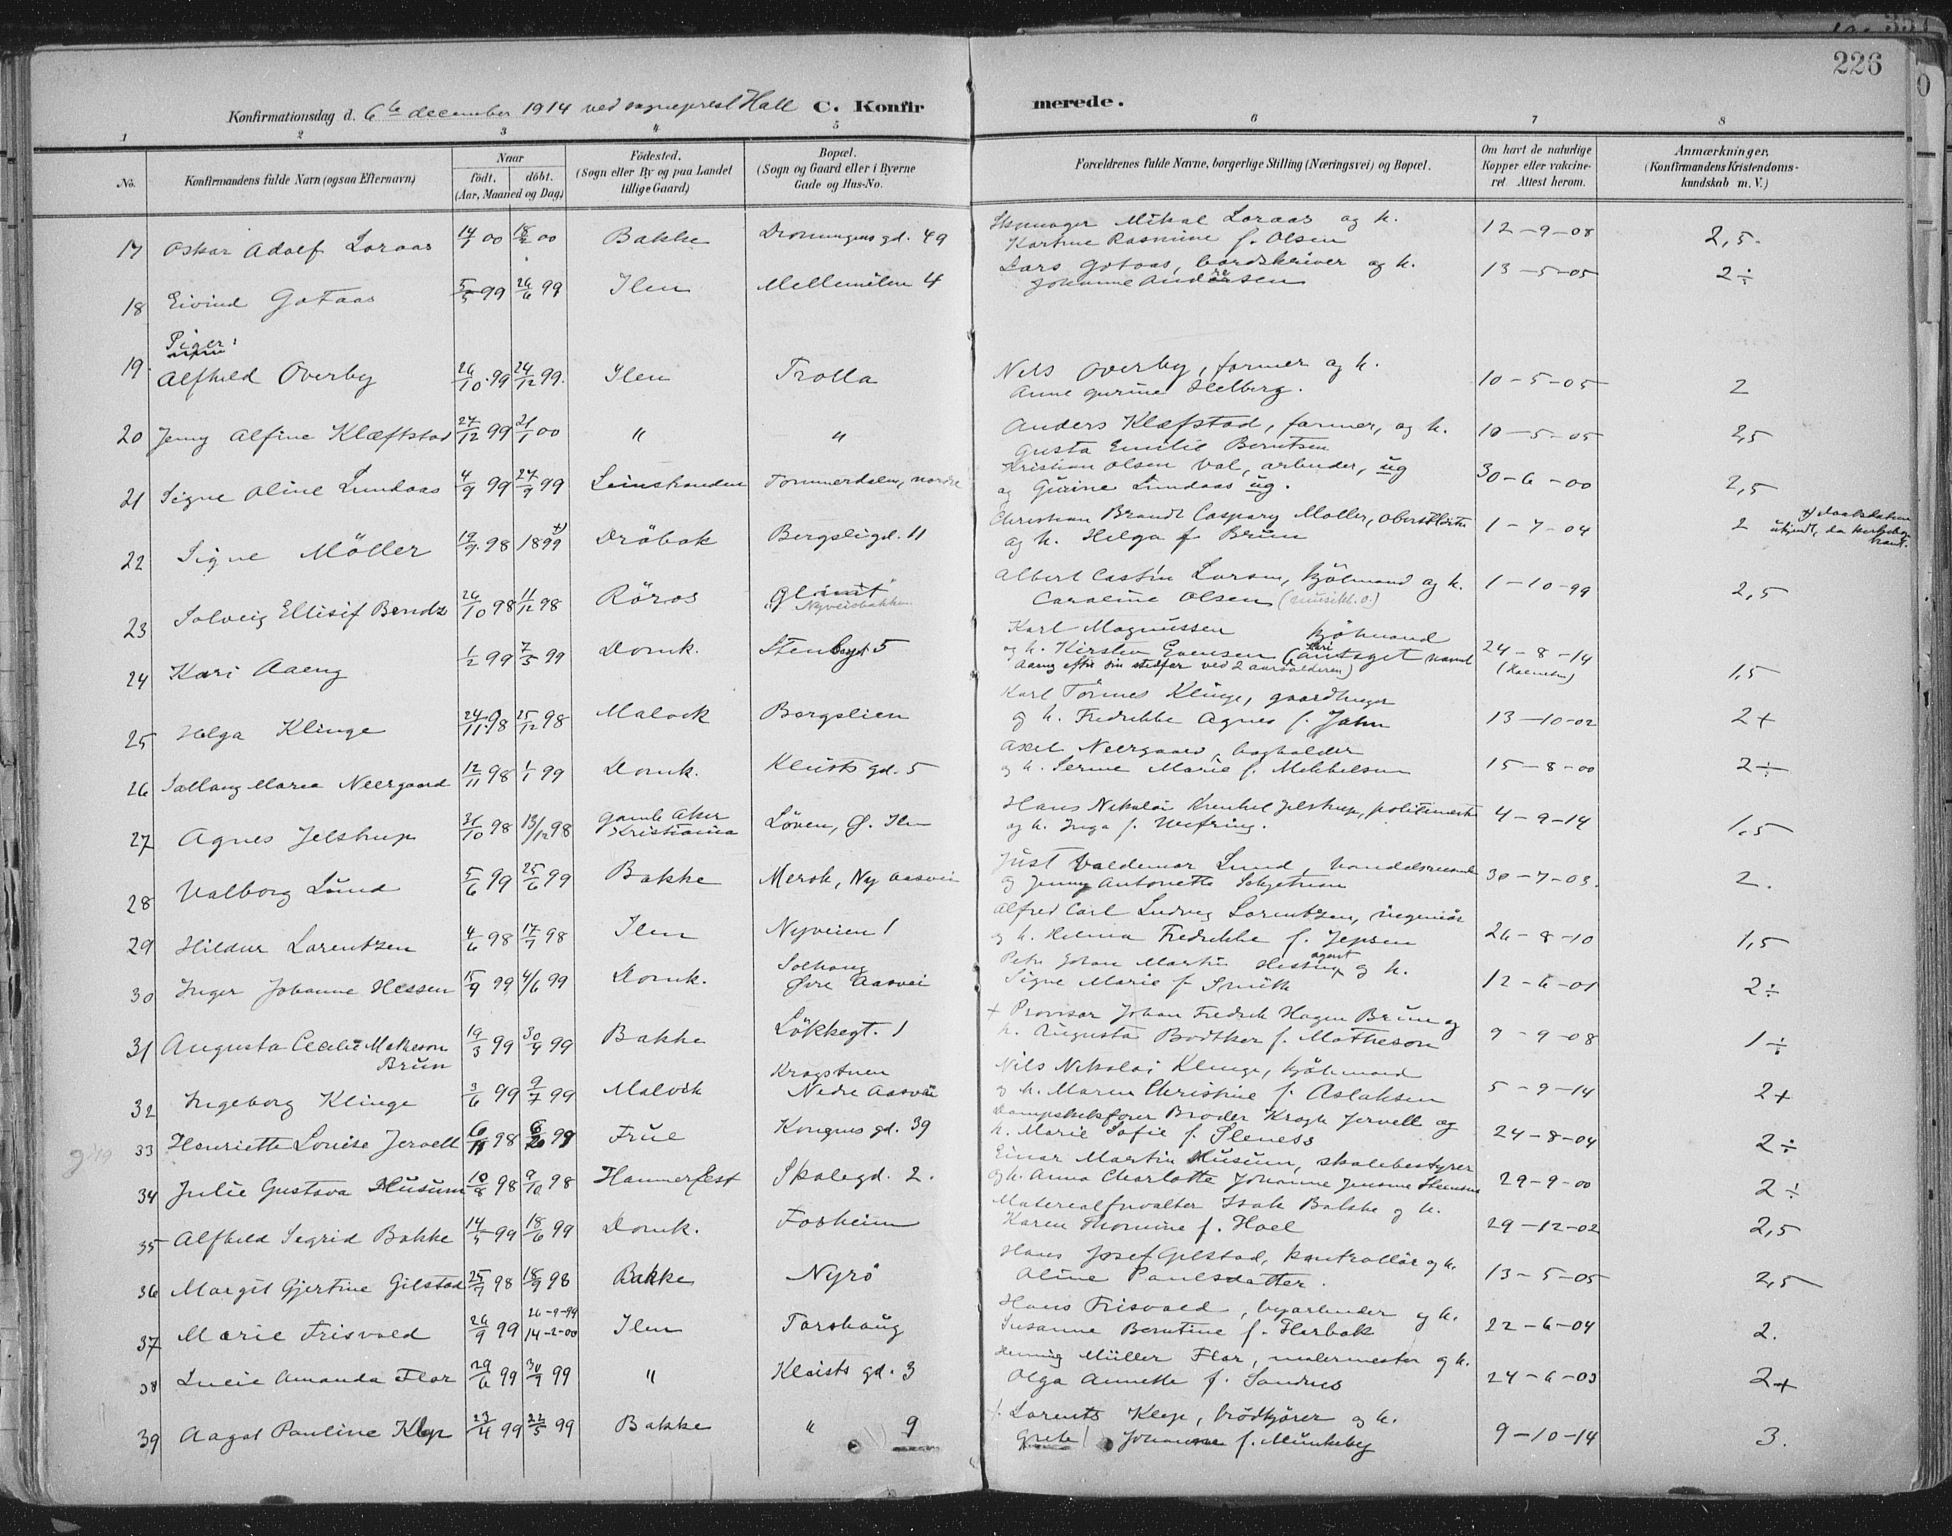 226
Konfirmationsdag d. 6te december 1914 ved sogneprest Hall C. Konfirmerede.
1 2 3 4 5 6 7 8
No. Konfirmandens fulde Navn (ogsaa Efternavn) Naar født. døbt. (Aar, Maaned og Dag) Fødested. (Sogn eller By og paa Landet tillige Gaard) Bopæl. (Sogn og Gaard eller i Byerne Gade og Hus-No. Forældrenes fulde Navne, borgerlige Stilling (Næringsvei) og Bopæl. Om havt de naturlige Kopper eller vakcineret. Attest herom. Anmærkninger. (Konfirmandens Kristendomskundskab m. V.)
17 Oskar Adolf Loraas 14/1 00 18/2 00 Bakke Dronningens gd. 49 Mikal Loraas og h. Rasmine f. Olsen 12-9-08 2,5.
18 Eivind Gotaas 5/5 99 26/6 99 Ilen Mellemilen 4 Lars Gotaas, og h. Johanne Andersen 13-5-05 2÷
Piger:
19 Alfhild Overby 26/10 99 24/12 99. Ilen Trolla Nils Overby, former og h. Anne Gurine Helberg. 10-5-05 2
20 Jenny Alfine Klæftstad 27/12 99 21/1 00 " " Anders Klæfstad, farmer, og h. Gusta Emilie Berntsen 10-5-05 2,5
21 Signe Oline Lundaas 4/9 99 24/9 99 Leinstranden Tommerdalen, nordre Kristian Olsen Val, arbeider, ug og Gurine Lundaas ug. 30-6-00 2,5
22 Signe Möller 19/9 98 1899 +) Dröbak Bergsligd. 11 Christian Brandt Caspary Möller, og h. Helga f. Brun 1-7-04 2 +)
23 Solveig Ellisif Bendz 26/10 98 11/12 98 Röros Nyveisbakken Albert Castin Larsen, kjöbmand og h. Caroline Olsen 1-10-99 2,5
24 Kari Aaeng 1/2 99 7/5 99 Domk. Stenbgt 5 Karl Magnussen kjöbmand og h. Kirsten Evensen (Kari antaget navnet Aaeng efter sin stedfar ved 2 aarsalderen) 24-8-14 1,5
25 Helga Klinge 24/11 98 25/12 98 Malvik Bergslien Karl Tönnes Klinge, gaardbruger og h. Fredrikke Agnes f. Jahn 13-10-02 2+
26 Sallaug Marea Neergaard 12/11 98 1/1 99 Domk. Kleists gd. 5 Axel Neergaard, bogholder og h. Serine Marie f. Mikkelsen 15-8-00 2÷
27 Agnes Jelstrup 31/10 98 13/12 98 Gamle Aker Kristiania Løven, Ø. Ilen Hans Nikolai Krenkel Jelstrup, politimester og h. Inga f. Wefring. 4-9-14 1,5
28 Valborg Lund 5/6 99 25/6 99 Bakke Mersk, Ny Aasvei Just Valdemar Lund, handelsmand og Jenny Antonette Schjetnan 30-7-03. 2.
29 Hildur Lorentzen 4/6 98 17/7 98 Ilen Nyveien 1 Alfred Carl Ludvig Lorentzen, ingeniör og h. Helma Fredrikke f. Jepsen 26-8-10 1,5
30 Inger Johanne Hessen 15/9 99 4/6 99 Domk. Solhaug Øvre Aasvei Petr Johan Martin agent og h. Signe Marie f. Smith 12-6-01 2÷
31 Augusta Cecilie Matheson Brun 19/3 99 30/4 99 Bakke Lökkegt. 1 + Provisor Johan Fredrik Hagen Brun og h. Augusta Bødtker f. Matheson 9-9-08 1÷
32 Ingeborg Klinge 3/6 99 9/7 99 Malvik Kragstuen Nedre Aasvei Nils Nikolai Klinge, kjöbmand og h. Maren Christine f. Aslaksen 5-9-14 2+
33 Henriette Louise Jervell 6/11 98 99 Frue Kongens gd. 39 Dampskibsfører Broder Krogh Jervell og h. Marie Sofie f. Steness 24-8-04 2÷
34 Julie Gustava Husum 10/8 98 9/10 98 Hammerfest Skolegd. 2. Einar Martin Husum, skolebestyrer og h. Anna Charlotte Johanne 29-9-00 2÷
35 Alfhild Sigrid Bakke 14/5 99 18/6 99 Domk. Fosheim Materealforvalter Isak Bakke og h. Karen Thomine f. Hoel 29-12-02 2,5
36 Margit Gjertine Gilstad 25/7 98 18/9 98 Bakke Nyrö Hans Josef Gilstad, kontrollör og h. Aline Paulsdatter. 13-5-05 2,5
37 Marie Frisvold 26/9 99 26-9-99 14-2-00 Ilen Torshaug Hans Frisvold, byarbeider og h. Susanne Berntine f. Herbak 22-6-04 2.
38 Lucie Amanda Flor 29/6 99 30/7 99 " Kleists gd. 3 Henning Müller Flor, malermester og h. Olga Annette f. Sandnes 24-6-03 2+
39 Aagot Pauline Klep 23/4 99 22/5 99 Bakke " 9 + Lorents Klep, brödkjörer og h. Grete Johanne f. Munkeby 9-10-14 3.